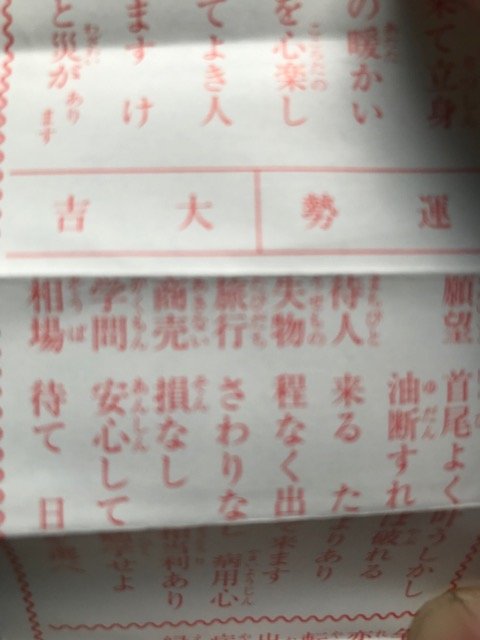 て立身
の暖かい
を心楽し
てよき人
ます け
と災があります
運勢 大吉
願望 首尾よく叶うしかし
油断すれば破れる
待人 来る たよりあり
失物 程なく出来ます
旅行 さわりなし 病用心
商売 損なし 利あり
学問 安心して 学せよ
相場 待て 日